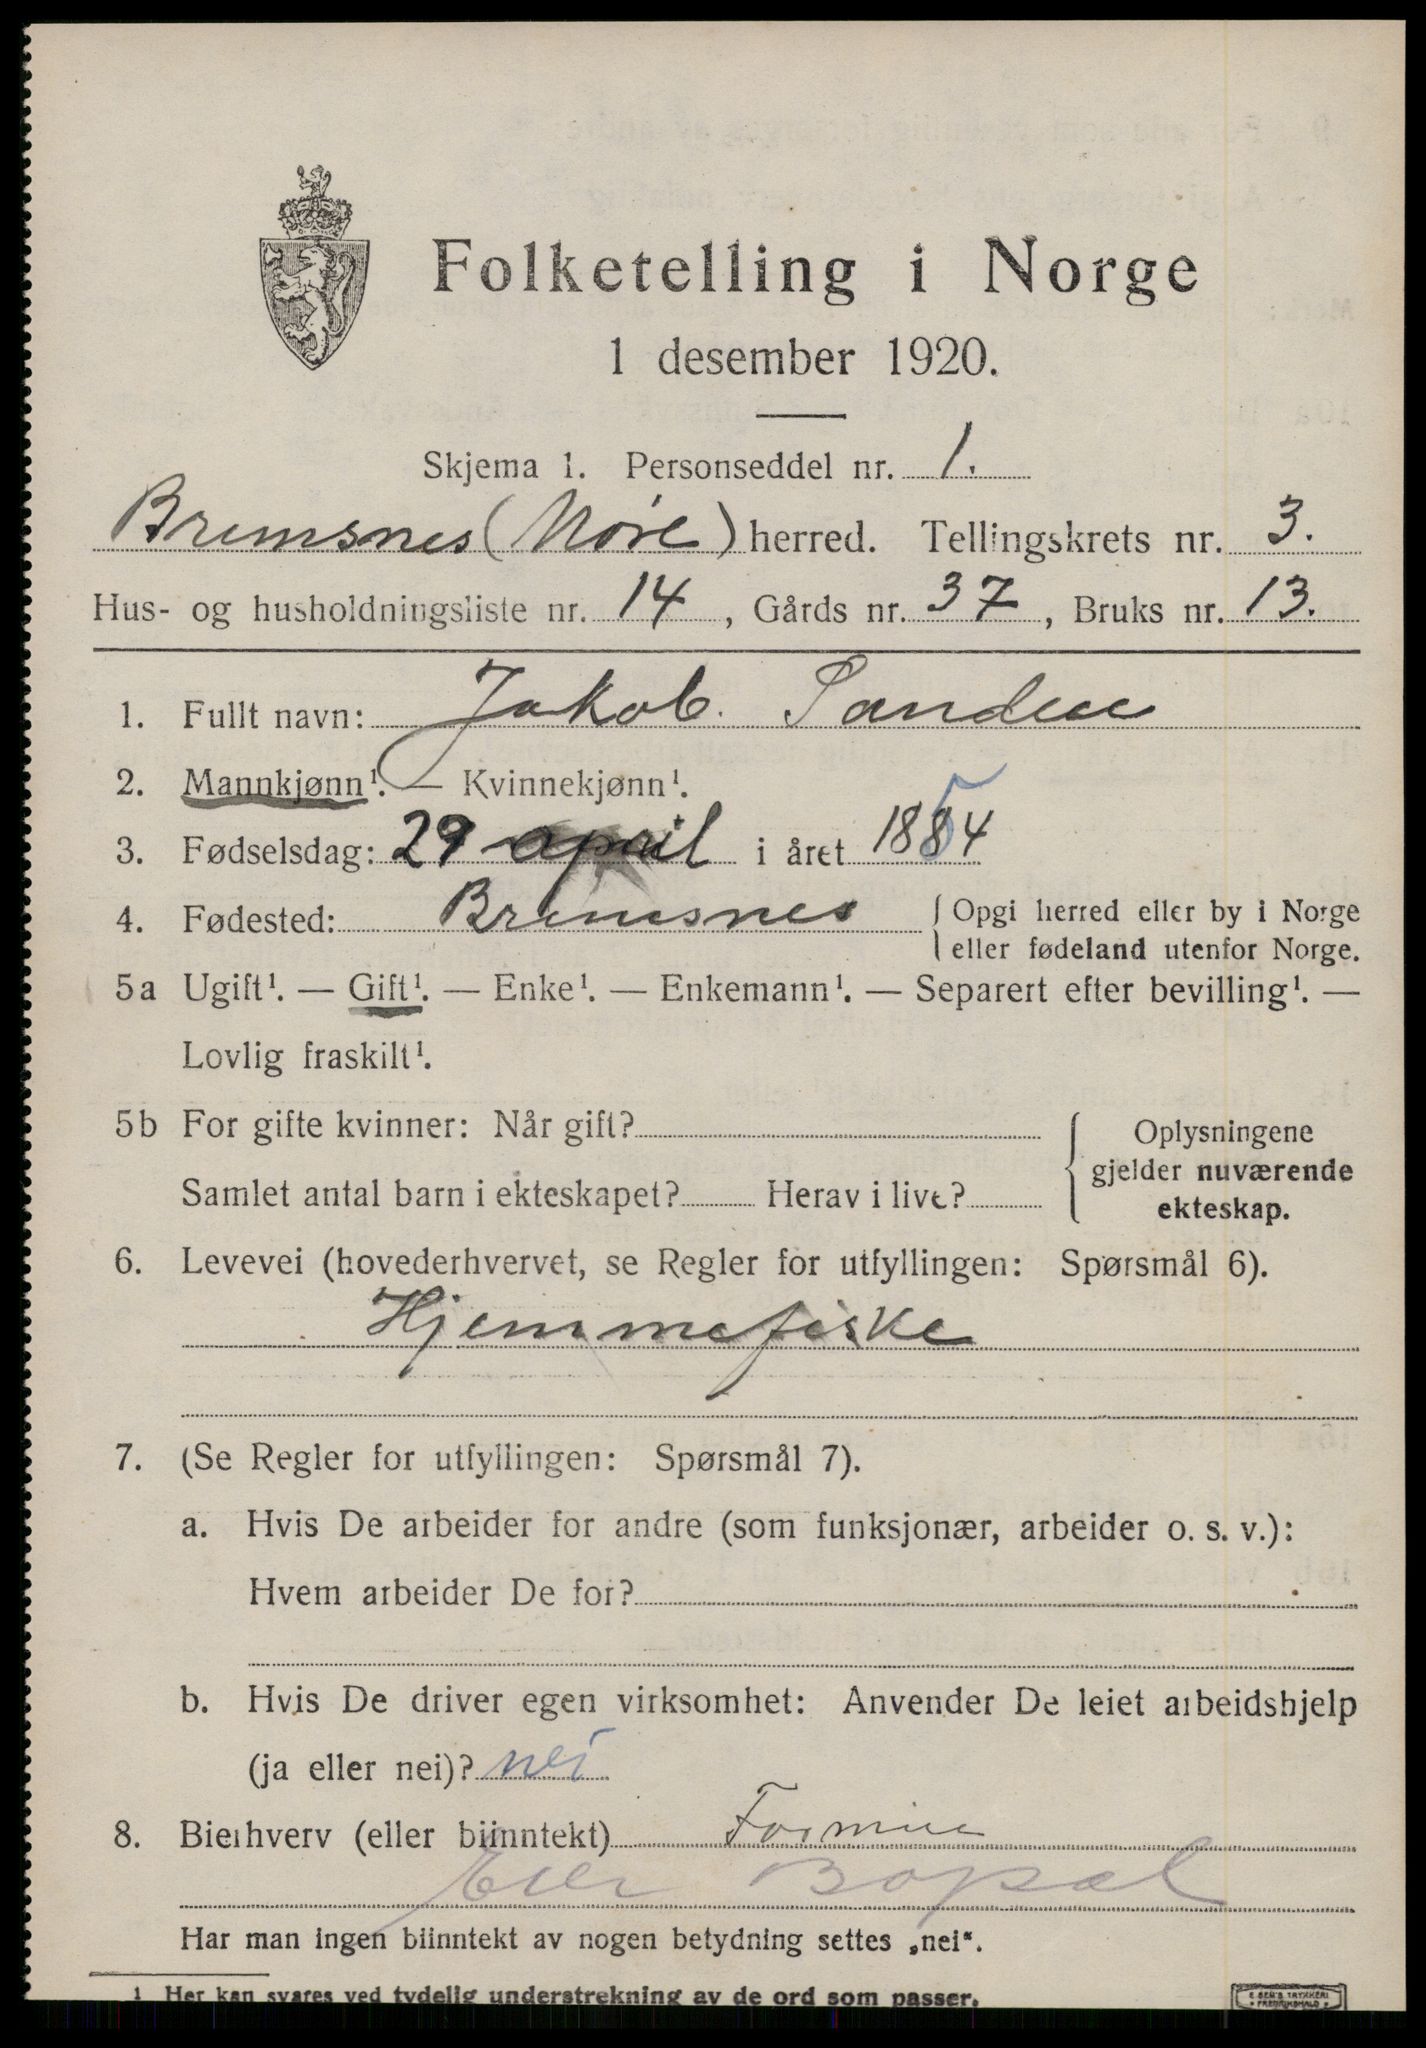 Folketelling i Norge
1 desember 1920.
Skjema 1. Personseddel nr. 1.
Bremsnes (Møre) herred. Tellingskrets nr. 3.
Hus- og husholdningsliste nr. 14, Gårds nr. 37, Bruks nr. 13.
1. Fullt navn: Jakob
2. Mannkjønn¹. — Kvinnekjønn¹.
3. Fødselsdag: 29 april i året 1884
4. Fødested: Bremsnes {Opgi herred eller by i Norge
eller fødeland utenfor Norge.
5a Ugift¹. — Gift¹. — Enke¹. — Enkemann¹. — Separert efter bevilling¹. —
Lovlig fraskilt¹.
5b For gifte kvinner: Når gift? Oplysningene
gjelder nuværende
Samlet antal barn i ekteskapet? Herav i live? ekteskap.
6. Levevei (hovederhvervet, se Regler for utfyllingen: Spørsmål 6).
Hjemmefiske
7. (Se Regler for utfyllingen: Spørsmål 7).
a. Hvis De arbeider for andre (som funksjonær, arbeider o. s. v.):
Hvem arbeider De for?
b. Hvis De driver egen virksomhet: Anvender De leiet arbeidshjelp
(ja eller nei)? nei
8. Bierhverv (eller biinntekt)
Har man ingen biinntekt av nogen betydning settes „nei“.
¹ Her kan svares ved tydelig understrekning av de ord som passer.
E SEM'S TRYKKERI
FREDRIKSHALD